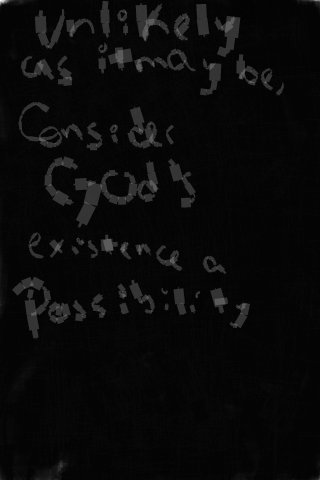 Unlikely
as it may be,
Consider
God's
existence a
Possibility